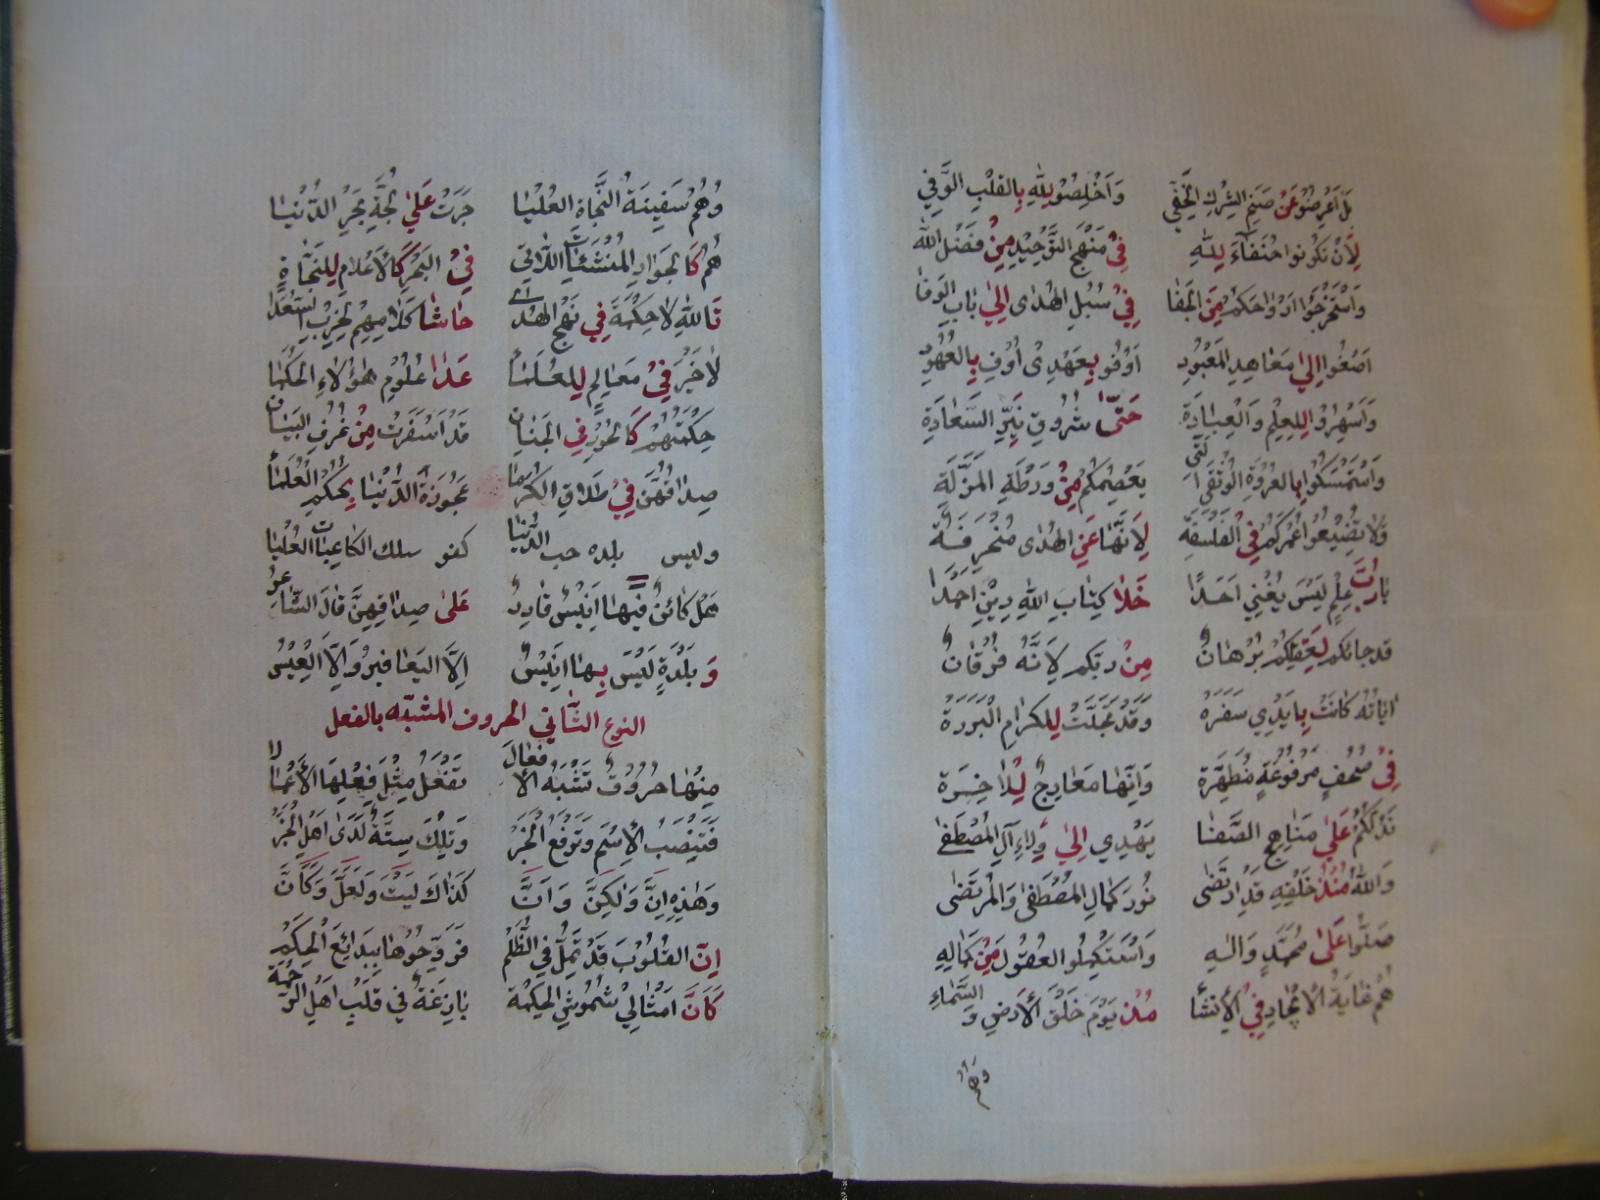 بَلْ اَعْرِضُوا عَنْ صَنَمِ الشِّرْكِ الْخَفِّي وَاَخْلِصُوا لِلّٰهِ بِالْقَلْبِ الْوَفِي
لِاَنْ تَكُونُوا حُنَفَاءَ لِلّٰهِ فِي مَنْهَجِ التَّوْحِيدِ مِنْ فَضْلِ اللّٰه
وَاسْتَخْرِجُوا اَرْوَاحَكُمْ مِنَ الْجَفَا فِي سُبُلِ الْهُدٰى اِلٰى بَابِ الْوَفَا
اَصْغُوا اِلٰى مَعَاهِدِ الْمَعْبُودِ اَوْفُوا بِعَهْدِي اُوفِ بِالْعُهُودِ
وَاَسْهِرُوا لِلْعِلْمِ وَالْعِبَادَةِ حَتّٰى شُرُوقِ نَيِّرِ السَّعَادَةِ
وَاسْتَمْسِكُوا بِالْعُرْوَةِ الْوُثْقٰى الَّتِي يَعْصِمُكُمْ مِنْ وَرْطَةِ الْمَزَلَّةِ
وَلَا تُضَيِّعُوا عُمْرَكُمْ فِي الْفَلْسَفَة لِاَنَّهَا عَنِ الْهُدٰى مُنْحَرِفَة
يَا رُبَّ عِلْمٍ لَيْسَ يُغْنِي اَحَدًا خَلَا كِتَابَ اللّٰهِ دِينِ اَحْمَدَا
قَدْ جَائَكُمْ لِعَقْلِكُمْ بُرْهَانٌ مِنْ رَبِّكُمْ لِاَنَّهُ فُرْقَانٌ
اٰيَاتُهُ كَانَتْ بِاَيْدِي سَفَرَة وَقَدْ تَجَلَّتْ لِلْكِرَامِ الْبَرَرَة
فِي صُحُفٍ مَرْفُوعَةٍ مُطَهَّرَة وَاِنَّهَا مَعَارِجٌ لِلْاٰخِرَة
تَدُلُّكُمْ عَلٰى مَنَاهِجِ الصَّفَا يَهْدِي اِلٰى وِلَاءِ اٰلِ الْمُصْطَفٰى
وَاللّٰهُ مُنْذُ خَلْقِهِ قَدِ ارْتَضٰى نُورَ كَمَالِ الْمُصْطَفٰى وَالْمُرْتَضٰى
صَلُّوا عَلٰى مُحَمَّدٍ وَاٰلِهِ وَاسْتَكْمِلُوا الْعُقُولَ مِنْ كَمَالِهِ
هُمْ غَايَةُ الْاِيجَادِ فِي الْاِنْشَا مُذْ يَوْمِ خَلْقِ الْاَرْضِ وَالسَّمَاءِ
وَهُمْ
وَهُمْ سَفِينَةُ النَّجَاةِ الْعُلْيَا جَرَتْ عَلٰى لُجَّةِ بَحْرِ الدُّنْيَا
هُمْ كَالْجَوَارِ الْمُنْشَئَاتِ اللَّاتِي فِي الْبَحْرِ كَالْاَعْلَامِ لِلنَّجَاةِ
تَاللّٰهِ لَا حِكْمَةَ فِي نَهْجِ الْهُدٰى حَاشَا كَلَامِهِمْ لِحِزْبِ السُّعَدَا
لَا خَيْرَ فِي مَعَالِمٍ لِلْعُلَمَا عَدَا عُلُومِ هٰؤُلَاءِ الْحُكَمَا
حِكْمَتُهُمْ كَالْحُورِ فِي الْجِنَانِ قَدْ اَسْفَرَتْ مِنْ غُرَفِ الْبَيَانِ
صِدَاقُهُنَّ فِي طَلَاقِ الْكُرَمَا عَجُوزَةَ الدُّنْيَا بِحُكْمِ الْعُلَمَا
وليس بلده حب الدُّنْيَا كفو سلك الكاعبات الْعُلْيَا
هَلْ كَائِنٌ فِيهَا اَنِيسٌ قَادِرٌ عَلٰى صِدَاقِهِنَّ قَالَ الشَّاعِرُ
وَبَلْدَةٍ لَيْسَ بِهَا اَنِيسٌ اِلَّا الْيَعَافِيرُ وَاِلَّا الْعِيسُ
النوع الثَّاني الحروف المشبّهه بالفعل
مِنْهَا حُرُوفٌ تَشْبَهُ الْاَفْعَالَ تَفْعَلُ مِثْلَ فِعْلِهَا الْاَعْمَالَا
فَتَنْصِبُ الْاِسْمَ وَتَرْفَعُ الْخَبَرْ وَتِلْكَ سِتَّةٌ لَدٰى اَهْلِ الْخَبَرْ
وَهٰذِهِ اِنَّ وَلٰكِنَّ وَاَنَّ كَذَاكَ لَيْتَ وَلَعَلَّ وَكَاَنَّ
اِنَّ الْقُلُوبَ قَدْ تَمَلُّ فِي الظُّلَمْ فَرَوِّحُوهَا بِبَدَائِعَ الْحِكَمْ
كَاَنَّ اَمْثَالِي شُمُوسُ الْحِكْمَة بَازِغَةٌ فِي قَلْبِ اَهْلِ الرَّحْمَة